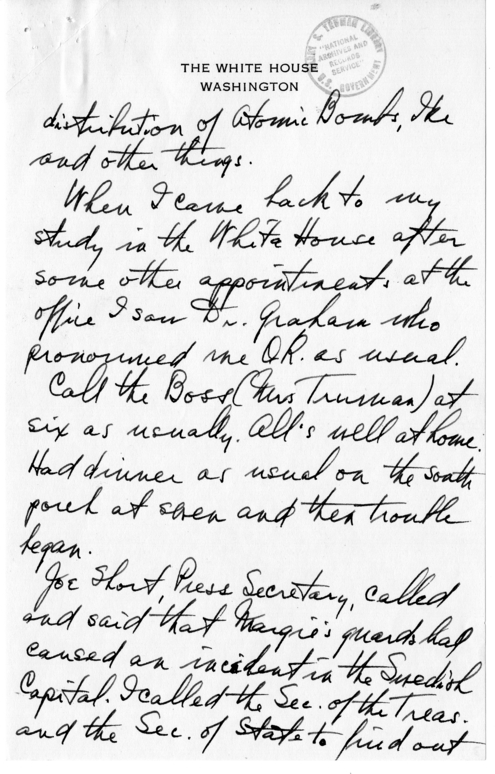 THE WHITE HOUSE
WASHINGTON
HARRY S. TRUMAN LIBRARY
"NATIONAL
ARCHIVES AND
RECORDS
SERVICE"
U.S. GOVERNMENT
distribution of Atomic Bombs, Ike
and other things.
When I came back to my
study in the White House after
some other appointments at the
office I saw Dr. Graham who
pronounced me O.K. as usual.
Call the Boss (Mrs Truman) at
six as usually. All's well at home.
Had dinner as usual on the south
porch at seven and then trouble
began.
Joe Short, Press Secretary, called
and said that Margie's guards had
caused an incident in the Swedish
Capital. I called the Sec. of the Treas.
and the Sec. of State to find out